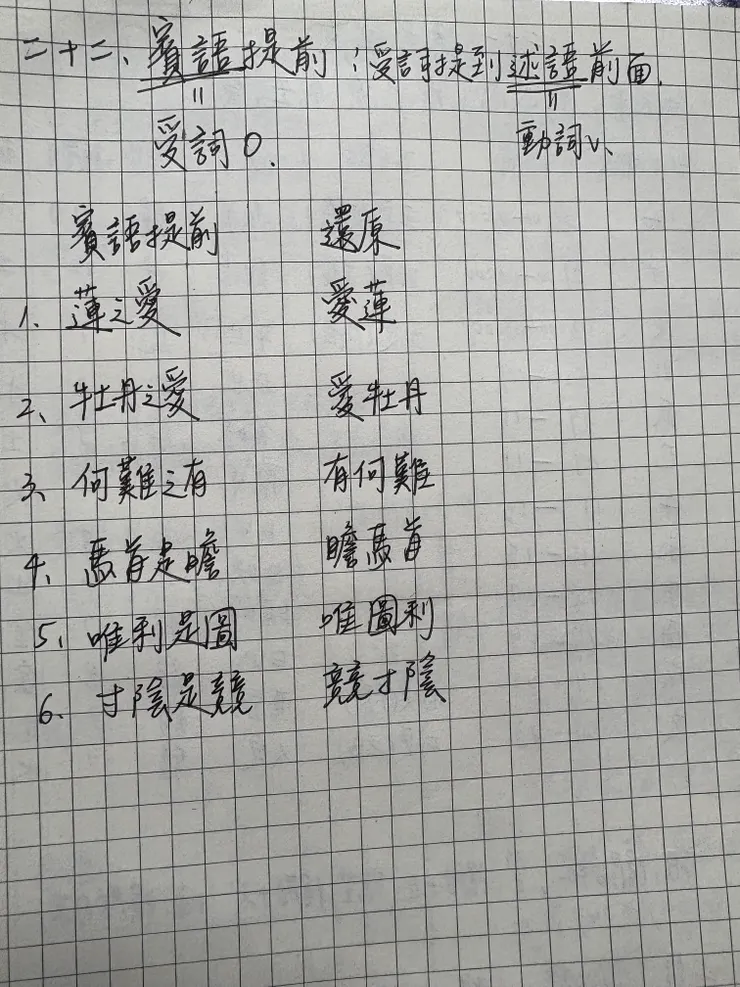 二十二、賓語提前：受詞提到述語前面.
〃 〃
受詞O. 動詞V、
賓語提前 還原
1、蓮之愛 愛蓮
2、牡丹之愛 愛牡丹
3、何難之有 有何難
4、馬首是瞻 瞻馬首
5、唯利是圖 唯圖利
6、寸陰是競 競寸陰